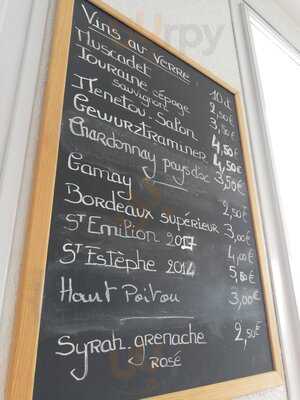 Vins au verre
10cl
Muscadet 2,50€
Touraine cépage sauvignon 3,10€
Menetou-Salon 4,50€
Gewurztraminer 4,50€
Chardonnay pays d'oc 3,50€
Gamay 2,50€
Bordeaux supérieur 3,00€
St Emilion 2017 4,00€
St Estèphe 2014 5,50€
Haut Poitou 3,00€
Syrah-grenache 2,50€
rosé